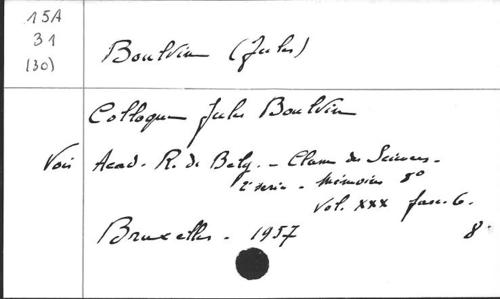 15A
31
(30)
Boulvin (Jules)
Colloque Jules Boulvin
Voir Acad. R. de Belg. - Classe des Sciences -
2e serie - Mémoires 8°
Vol. XXX fasc. 6.
Bruxelles - 1957 8°